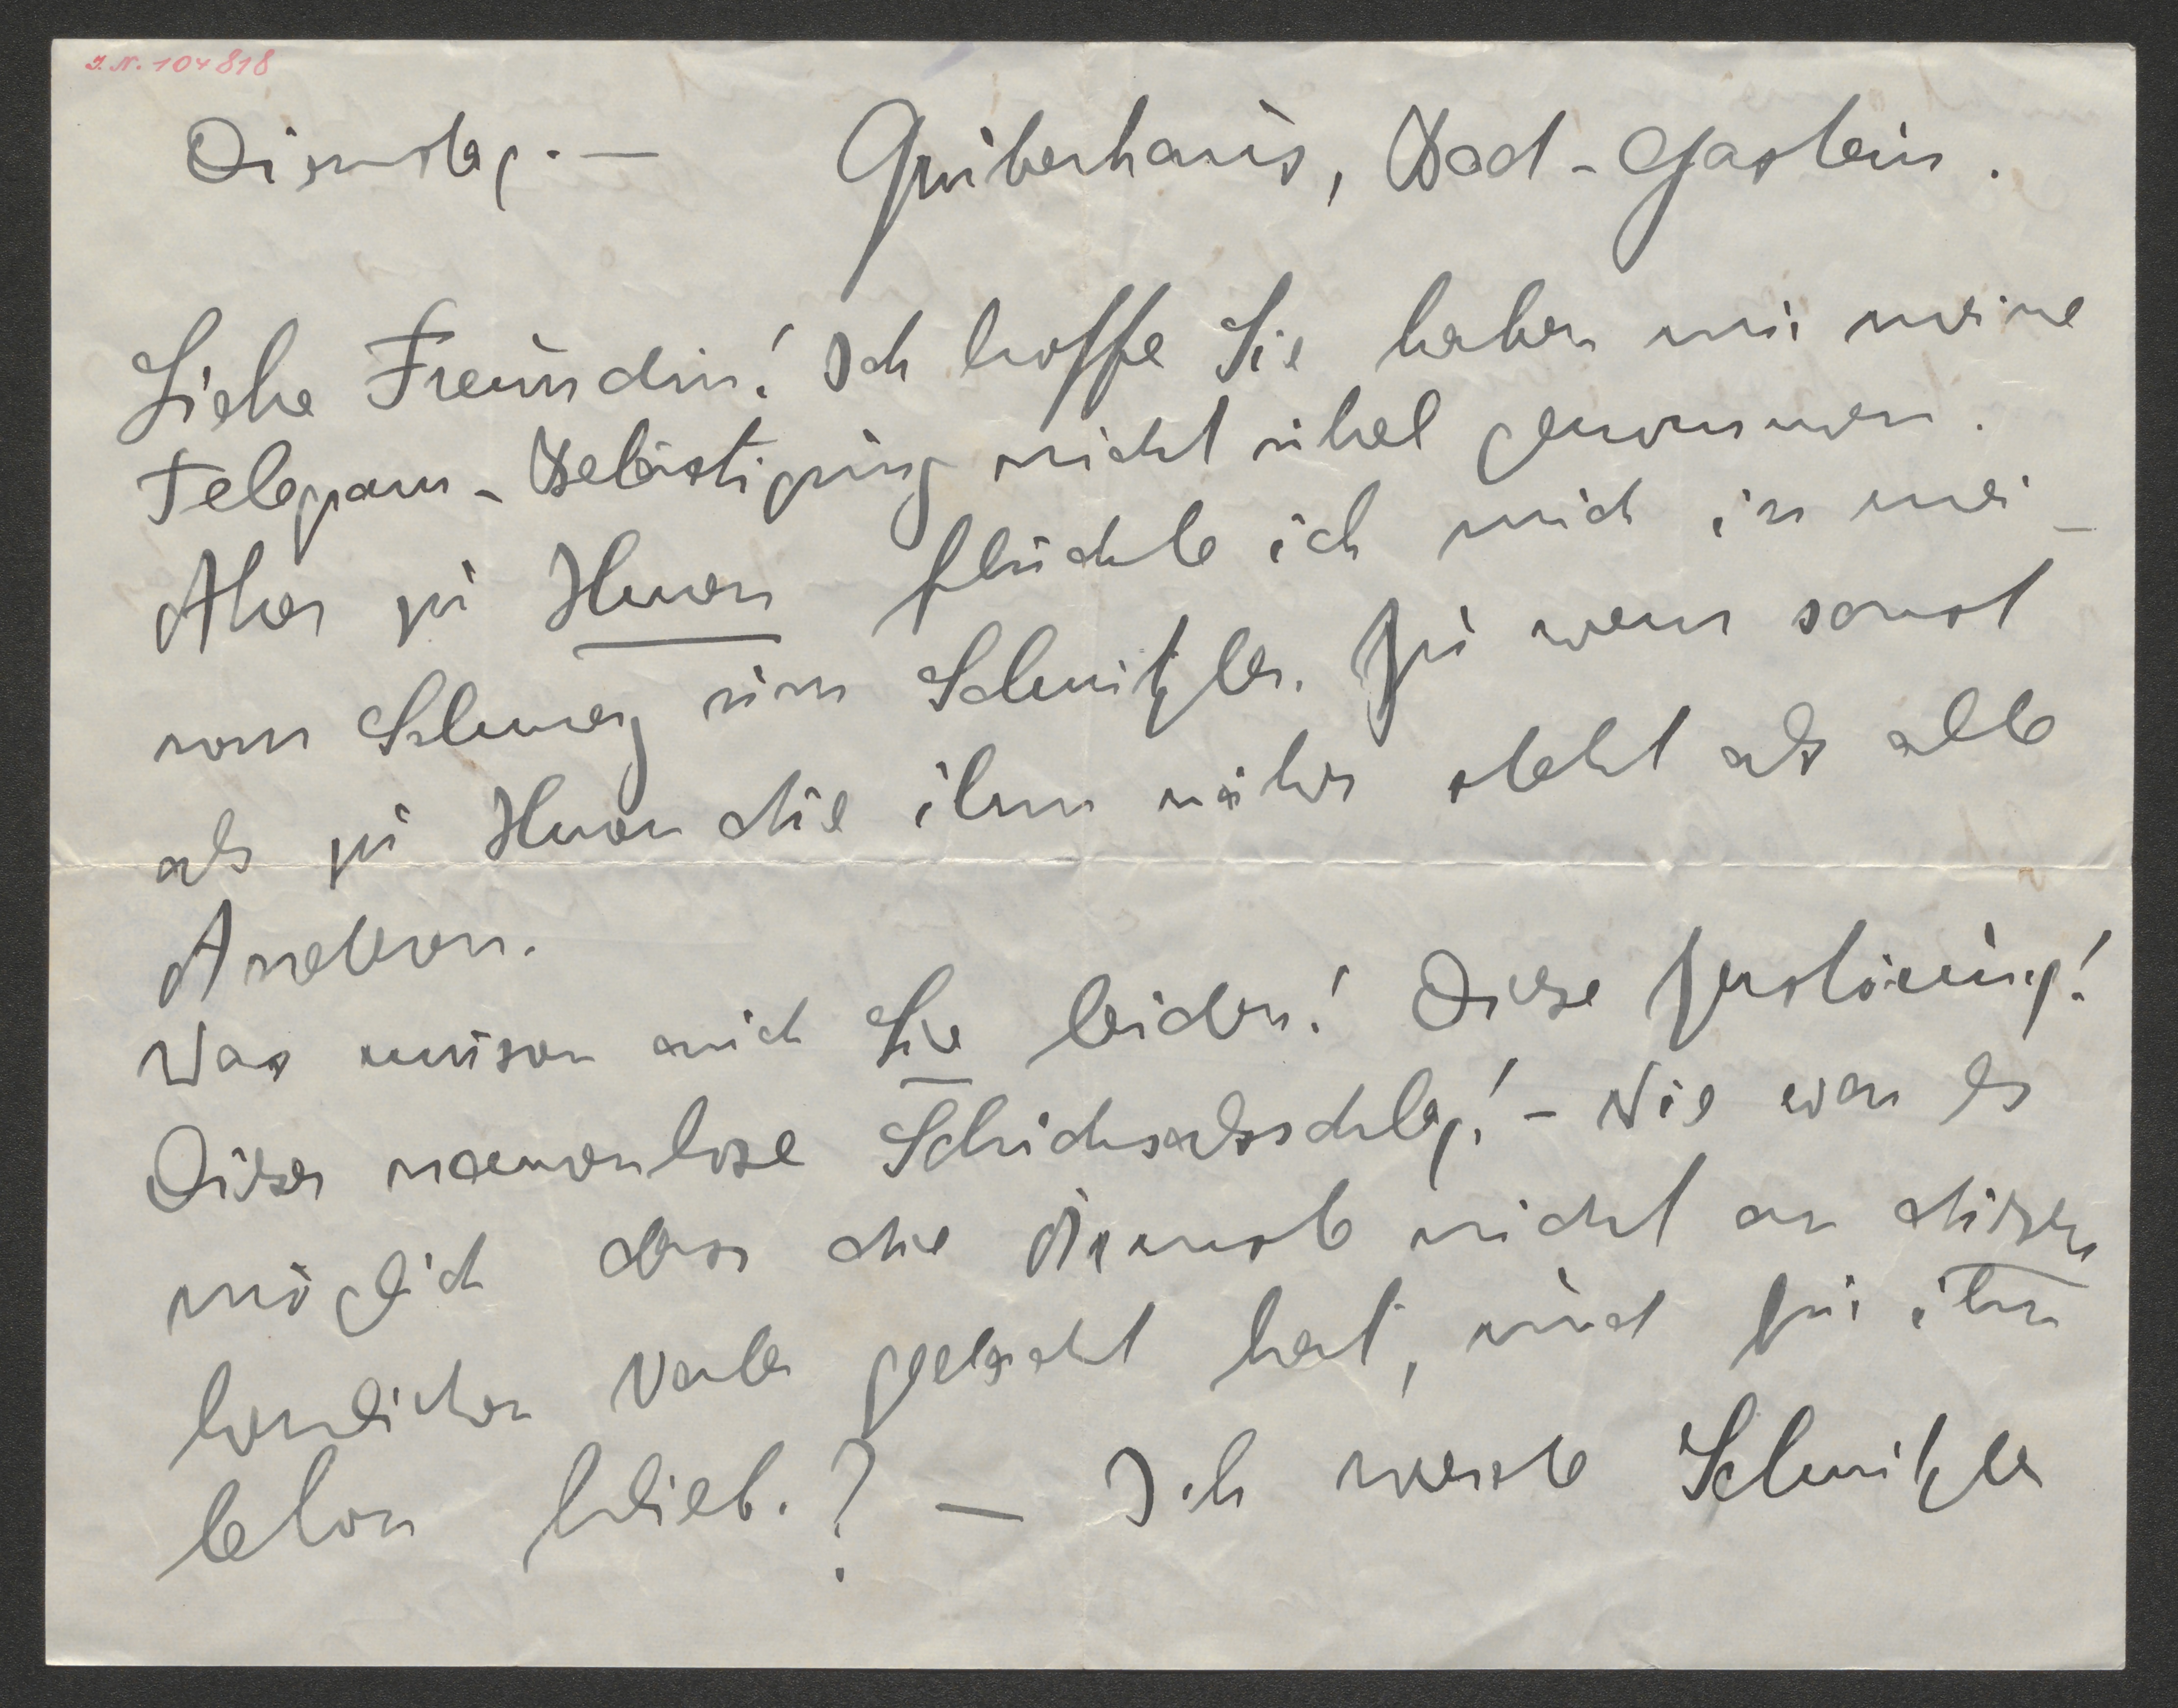 J. N. 104818
Dienstag. — Gruberhaus, Bad-Gastein.
Liebe Freundin! Ich hoffe Sie haben mir meine
Telegram-Belästigung nicht übel genommen.
Aber zu Ihnen flüchte ich mich in mei-
nem Schmerz um Schnitzler. Zu wem sonst
als zu Ihnen die ihm näher steht als alle
Anderen.
Was müssen auch Sie leiden! Diese Zerstörung!
Dieser namenlose Schicksalsschlag! – Wie war es
möglich dass die Ärmste nicht an diesen
herrlichen Vater gedacht hat, und für ihn
leben blieb.? — Ich werde Schnitzler